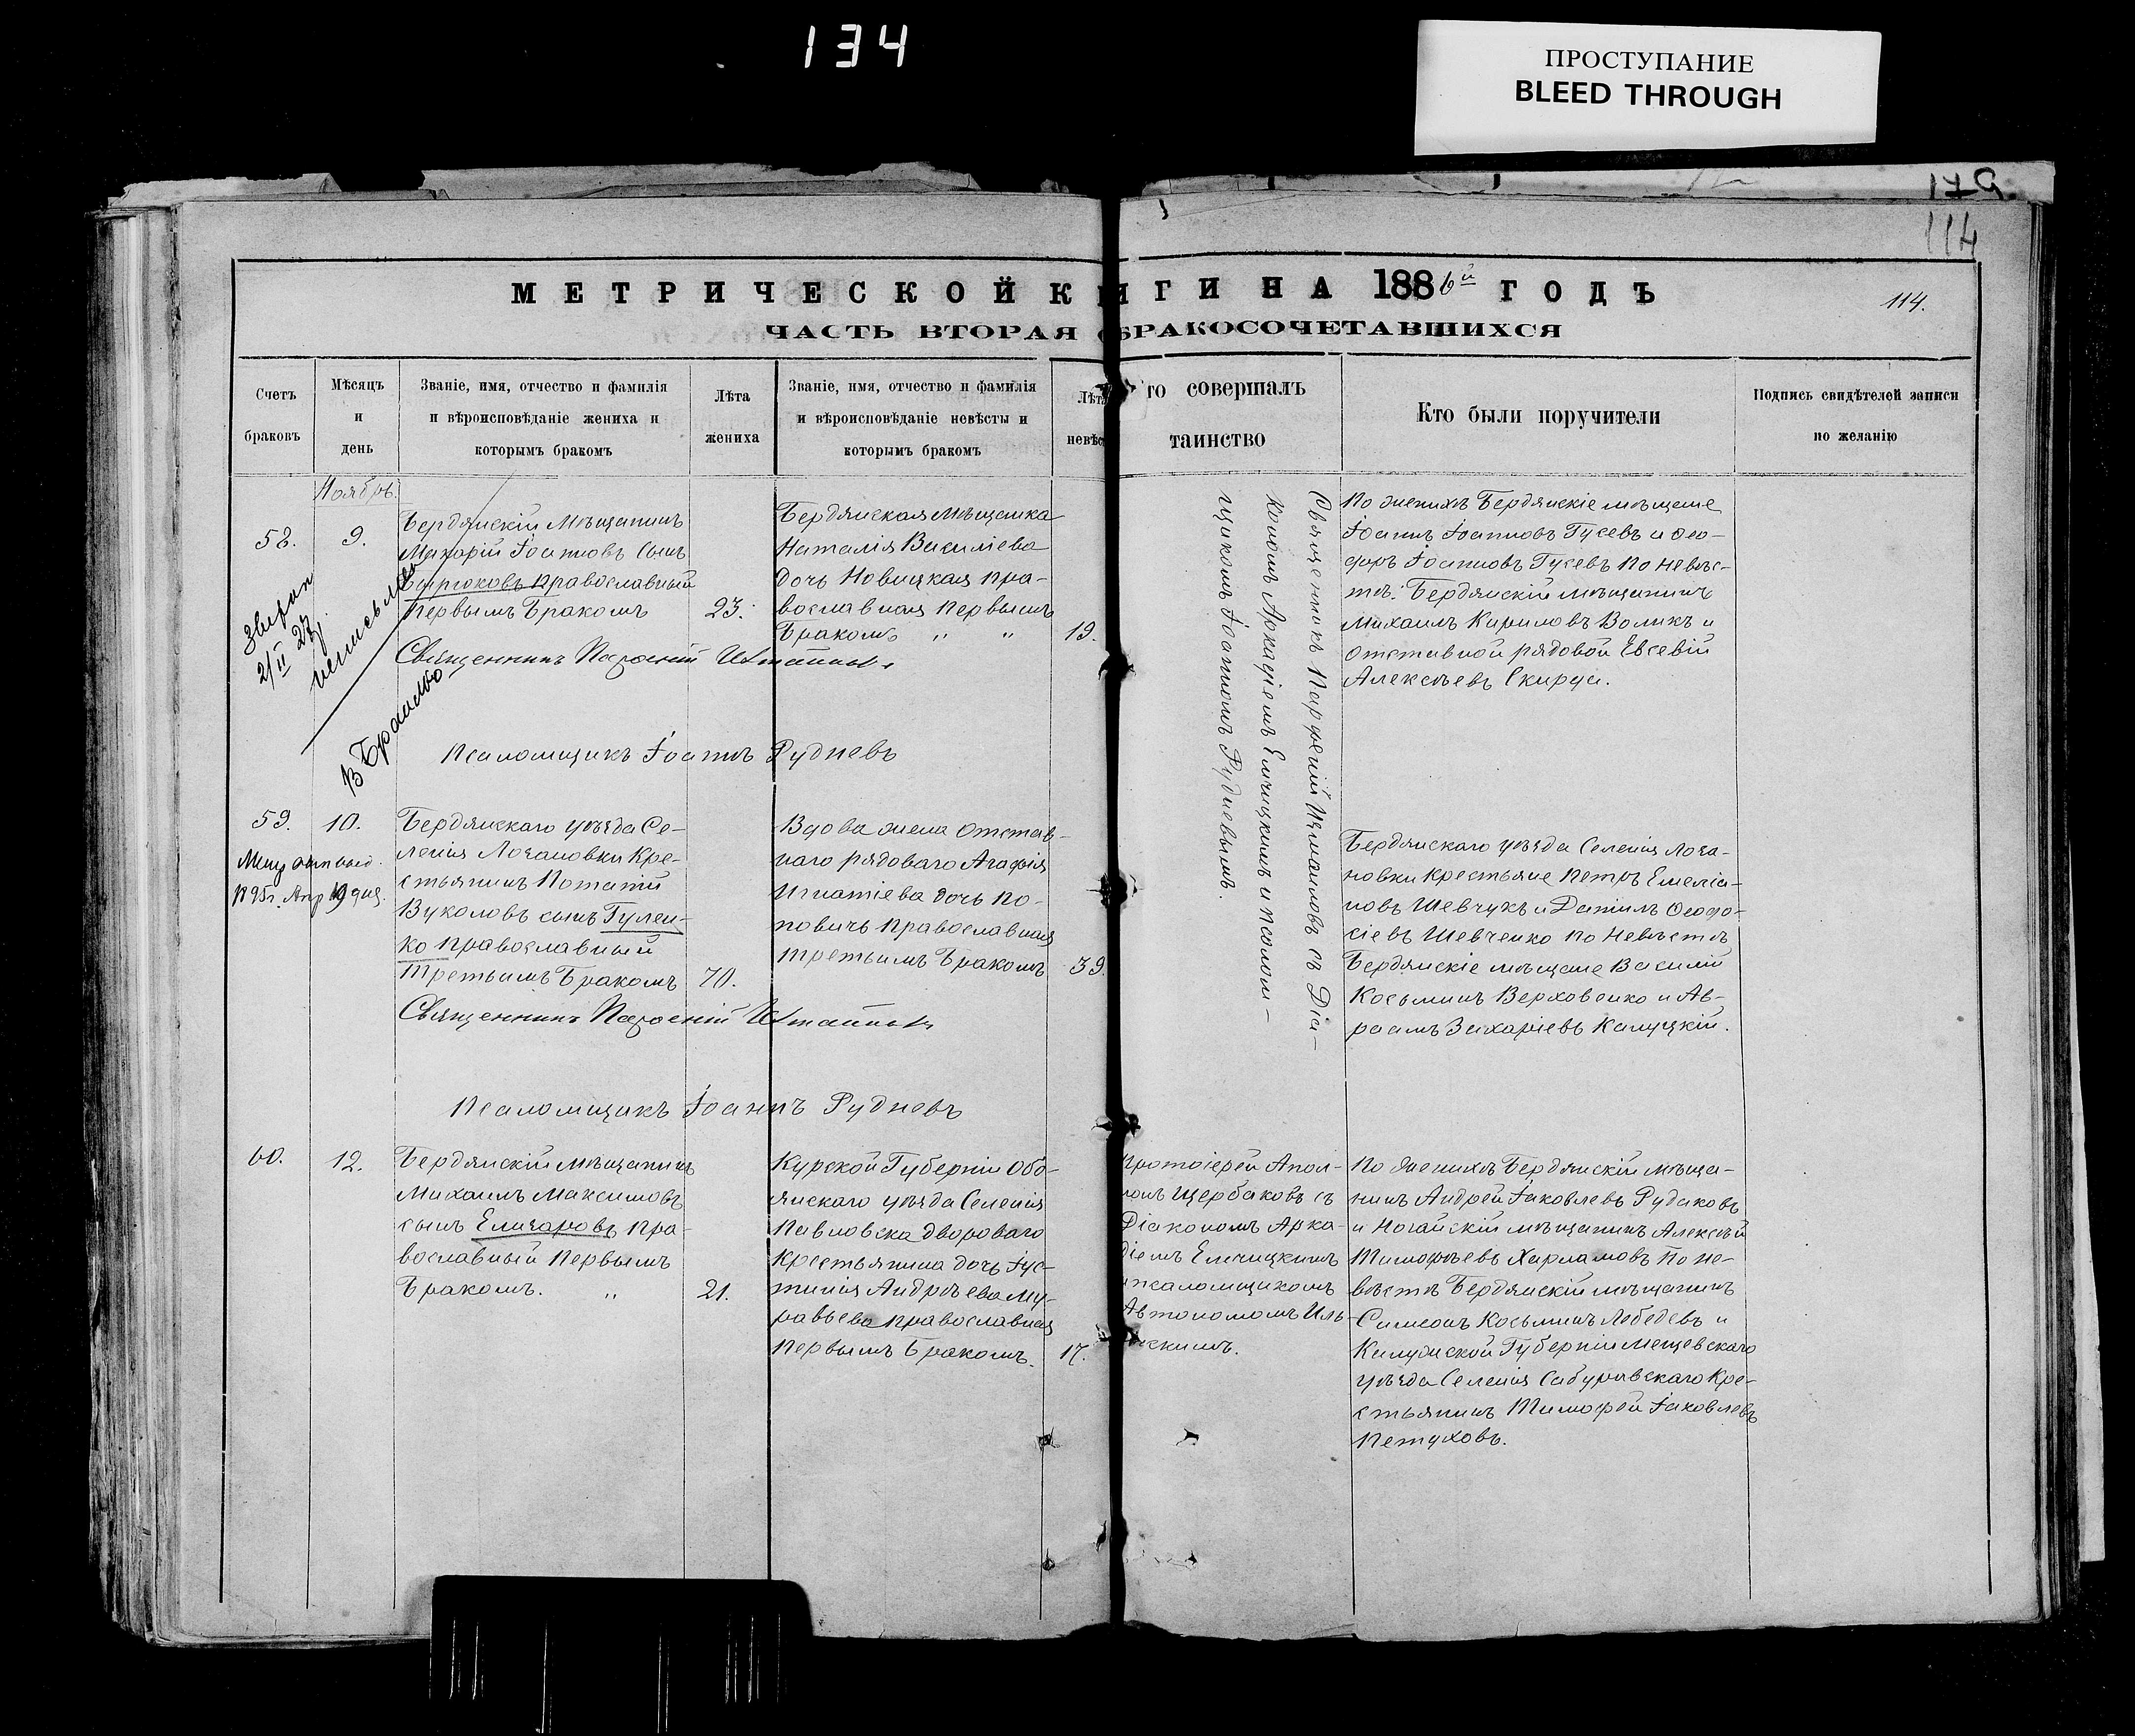 134
ПРОСТУПАНИЕ
BLEED THROUGH
179.
114
МЕТРИЧЕСКОЙ КНИГИ НА 1886й ГОДЪ
114.
ЧАСТЬ ВТОРАЯ БРАКОСОЧЕТАВШИХСЯ
Счетъ
браковъ
Мѣсяцъ
и
день
Званіе, имя, отчество и фамилія
и вѣроисповѣданіе жениха и
которымъ бракомъ
Лѣта
жениха
Званіе, имя, отчество и фамилія
и вѣроисповѣданіе невѣсты и
которымъ бракомъ
Лѣта
невѣс
го совершалъ
таинство
Кто были поручители
Подпись свидѣтелей записи
по желанію
Ноябрь.
58.
9.
Бердянскій Мѣщанинъ
Макарій Іоанновъ Сынъ
Бирюковъ Православный
Первымъ Бракомъ
23.
Бердянская Мѣщанка
Наталія Василіева
дочь Новицкая Пра-
вославная Первымъ
Бракомъ „ „
19.
Священникъ Парфеній Измаиловъ съ Діа-
кономъ Аркадіемъ Елчицкимъ и Псалом-
щикомъ Іоанномъ Рудневымъ.
По женихѣ Бердянскіе мѣщане
Іоаннъ Іоанновъ Гусевъ и Фео-
доръ Іоанновъ Гусевъ По невѣс-
тѣ: Бердянскій мѣщанинъ
Михаилъ Кириловъ Воликъ и
Отставной рядовой Евсевій
Алексѣевъ Скирда.
Священникъ Парфеній Измаиловъ
Псаломщикъ Іоаннъ Рудневъ
59.
10.
Бердянскаго уѣзда Се-
ленія Лозановки Кре-
стьянинъ Потапій
Вуколовъ сынъ Гулен-
ко Православный
Третьимъ Бракомъ
70.
Вдова жена Отстав-
наго рядоваго Агафія
Игнатіева дочь По-
повичъ Православная
Третьимъ Бракомъ
39.
Бердянскаго уѣзда Селенія Лоза-
новки Крестьяне Петръ Емеліа-
новъ Шевчукъ и Даніилъ Феодо-
сіевъ Шевченко По Невѣстѣ
Бердянскіе мѣщане Василій
Косьминъ Верховенко и Ав-
раамъ Захаріевъ Калуцкій.
Священникъ Парфеній Измаиловъ
Псаломщикъ Іоаннъ Рудневъ
60.
12.
Бердянскій мѣщанинъ
Михаилъ Максимовъ
сынъ Елизаровъ Пра-
вославный Первымъ
Бракомъ. „
21.
Курской Губерніи Обо-
янскаго уѣзда Селенія
Павловска дворового
Крестьянина дочь Іус-
тинія Андрѣева Му-
равьева Православная
Первымъ Бракомъ.
17.
Протоіерей Апол-
лонъ Щербаковъ съ
Діакономъ Арка-
діемъ Елчицкимъ
псаломщикомъ
Автономомъ Иль-
скимъ.
По Женихѣ Бердянскій мѣща-
нинъ Андрей Іаковлевъ Рудаковъ
и Ногайскій мѣщанинъ Алексѣй
Тимофѣевъ Харламовъ По не-
вѣстѣ Бердянскій мѣщанинъ
Симеонъ Косьминъ Лебедевъ и
Калужской Губерніи Мещевскаго
уѣзда Селенія Сабуровскаго Кре-
стьянинъ Тимофей Іаковлевъ
Петуховъ.